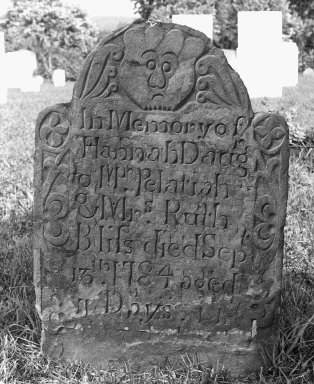 In Memory of
Hannah Daug
to Mr Pelatiah
& Mrs Ruth
Bliſs died Sep
13th 1784 aged
7 Days